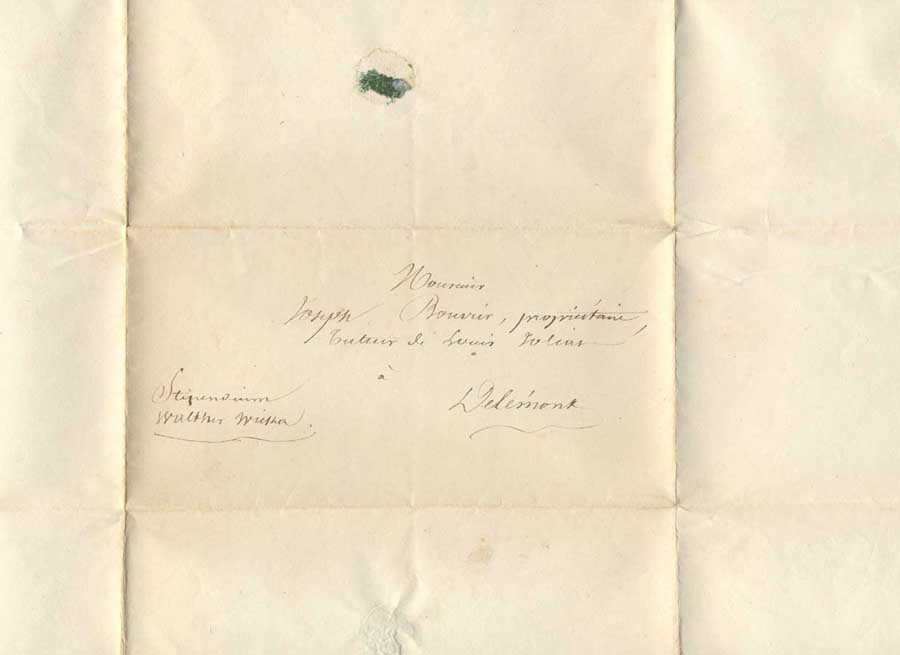 Monsieur
Joseph Bouvier, propriétaire,
Tuteur de Louis
à
Delémont
Stipendium
Walther